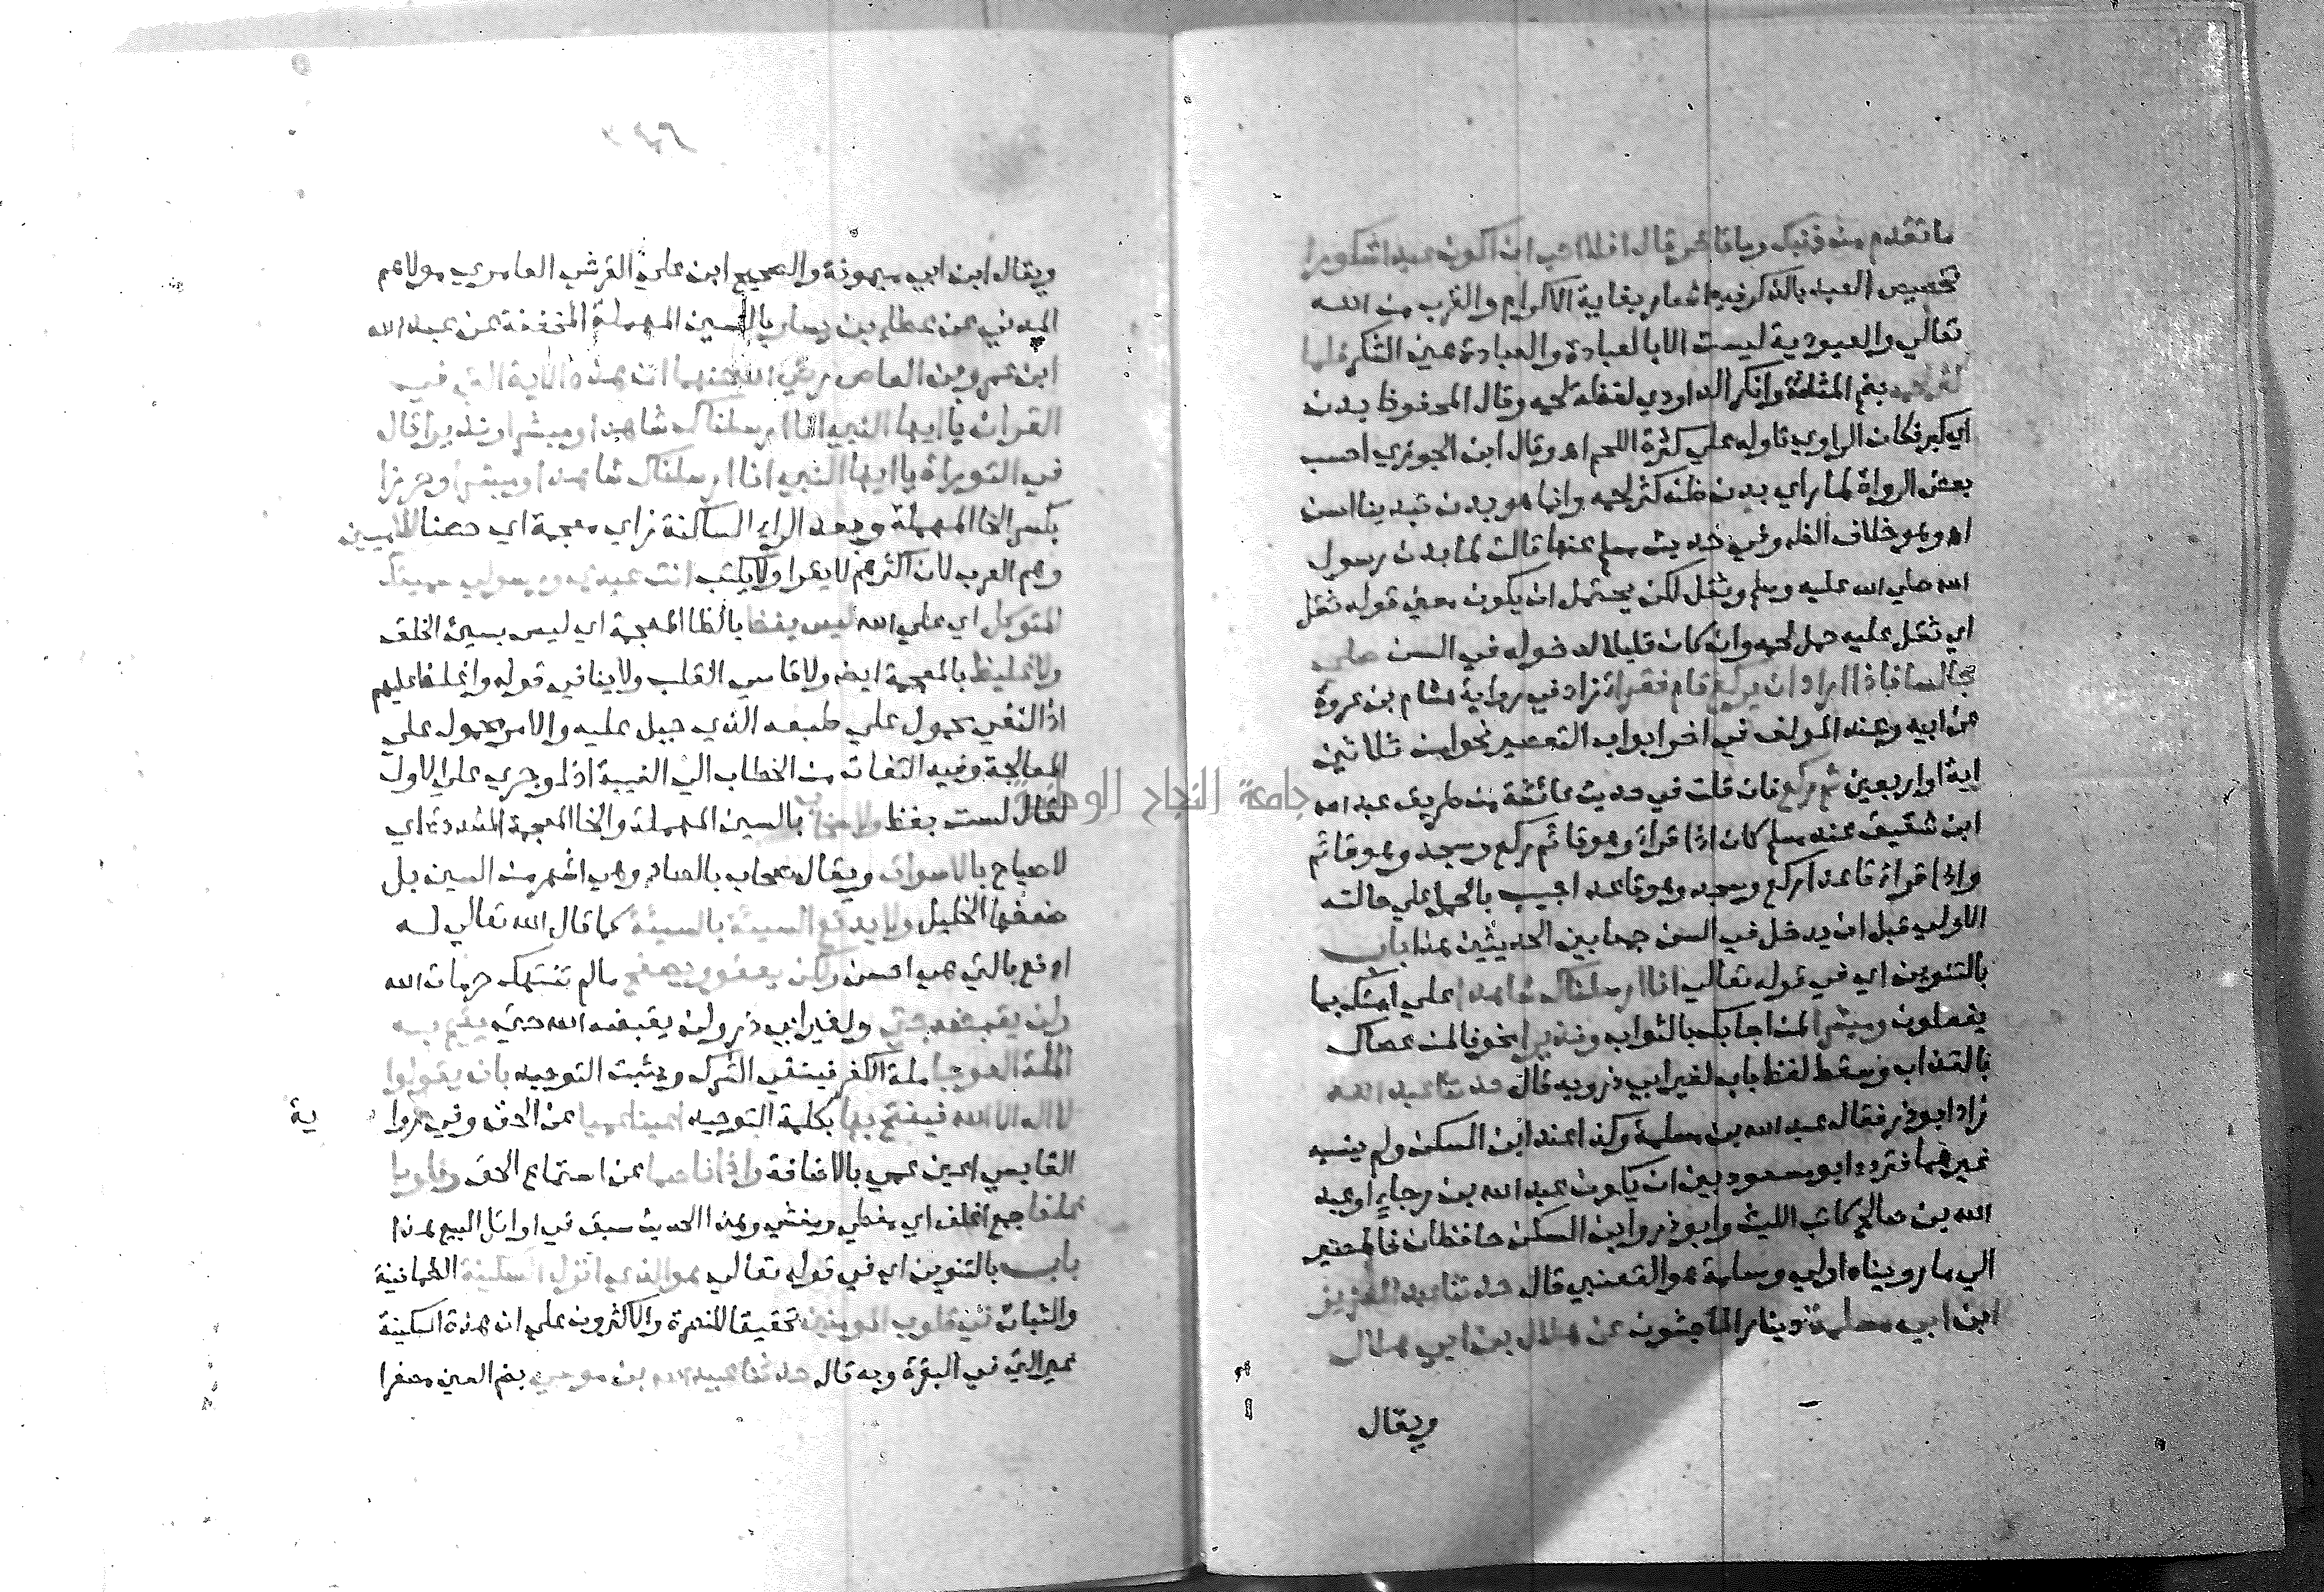 ما تقدم من ذنبك وما تاخر قال افلا احب ان اكون عبدا شكورا
تخصيص العبد بالذكر فيه اشعار بغاية الاكرام والقرب من الله
تعالي والعبودية ليست الا بالعبادة والعبادة عين الشكر فلما
كثر لحمه بضم المثلثة وانكر الداودي لفظة لحمه وقال المحفوظ بدن
اي كبر فكان الراوي تاوله علي كثرة اللحم اه وقال ابن الجوزي احسب
بعض الرواة لما راي بدن ظنه كثر لحمه وانما هو بدن تبدينا اسن
اه وهو خلاف الظ وفي حديث مسلم عنها قالت لما بدن رسول
الله صلي الله عليه وسلم وثقل لكن يحتمل ان يكون معني قوله ثقل
اي ثقل عليه حمل لحمه وان كان قليلا لدخوله في السن صلي
جالسا فاذا اراد ان يركع قام فقرا زاد في رواية هشام بن عروة
عن ابيه وعند المولف في اخر ابواب التقصير نحوا من ثلاثين
اية او اربعين ثم ركع فان قلت في حديث عائشة من طريق عبد الله
ابن شقيق عند مسلم كان اذا قرا وهو قائم ركع وسجد وهو قائم
واذا قرا قاعدا ركع وسجد وهو قاعد اجيب بالحمل علي حالته
الاولي قبل ان يدخل في السن جمعا بين الحديثين هذا باب
بالتنوين اي في قوله تعالي انا ارسلناك شاهدا علي امتك بما
يفعلون ومبشرا لمن اجابك بالثواب ونذيرا مخوفا لمن عصاك
بالعذاب وسقط لفظ باب لغير ابي ذر وبه قال حدثنا عبد الله
زاد ابو ذر فقال عبد الله بن مسلمة وكذا عند ابن السكن ولم ينسبه
غيرهما فتردد ابو مسعود بين ان يكون عبد الله بن رجاء او عبد
الله بن صالح كاتب الليث وابو ذر وابن السكن حافظان فالمصير
الي ما روياه اولي ومسلمة هو القعنبي قال حدثنا عبد العزيز
ابن ابي سلمة دينار الماجشون عن هلال بن ابي هلال
ويقال
ويقال ابن ابي ميمونة والصحيح ابن علي القرشي العامري مولاهم
المدني عن عطاء بن يسار بالسين المهملة المخففة عن عبد الله
ابن عمرو بن العاص رضي الله عنهما ان هذه الاية التي في
القران يا ايها النبي انا ارسلناك شاهدا ومبشرا ونذيرا قال
في التوراة يا ايها النبي انا ارسلناك شاهدا ومبشرا وحرزا
بكسر الحا المهملة وبعد الراء الساكنة زاي معجمة اي حصنا للاميين
وهم العرب لان اكثرهم لا يقرا ولا يكتب انت عبدي ورسولي سميتك
المتوكل اي علي الله ليس بفظ بالظا المعجمة اي ليس بسيئ الخلق
ولا غليظ بالمعجمة ايضا ولا قاسي القلب ولا ينافي قوله واغلظ عليهم
اذ النفي محمول علي طبعه الذي جبل عليه والامر محمول علي
المعالجة وفيه التفات من الخطاب الي الغيبة اذ لو جري علي الاول
لقال لست بفظ ولا سخاب بالسين المهملة والخا المعجمة المشددة اي
لا صياح بالاسواق ويقال صخاب بالصاد وهي اشهر من السين بل
ضعفها الخليل ولا يدفع السيئة بالسيئة كما قال الله تعالي له
ادفع بالتي هي احسن ولكن يعفو ويصفح ما لم تنتهك حرمات الله
ولن يقبضه حتي ولغير ابي ذر ولن يقبضه الله حتي يقيم به
الملة العوجا ملة الكفر فينفي الشرك ويثبت التوحيد بان يقولوا
لا اله الا الله فيفتح بها بكلمة التوحيد اعينا عميا عن الحق وفي روا ية
القابسي اعين عمي بالاضافة واذانا صما عن استماع الحق وقلوبا
غلفا جمع اغلف اي مغطي ومغشي وهذا الحديث سبق في اوائل البيع هذا
باب بالتنوين اي في قوله تعالي هو الذي انزل السكينة الطمانينة
والثبات في قلوب المومنين تحقيقا للنصرة والاكثرون علي ان هذه السكينة
غير التي في البقرة وبه قال حدثنا عبيد الله بن موسي بضم العين مصغرا
جامعة النجاح الوطنية